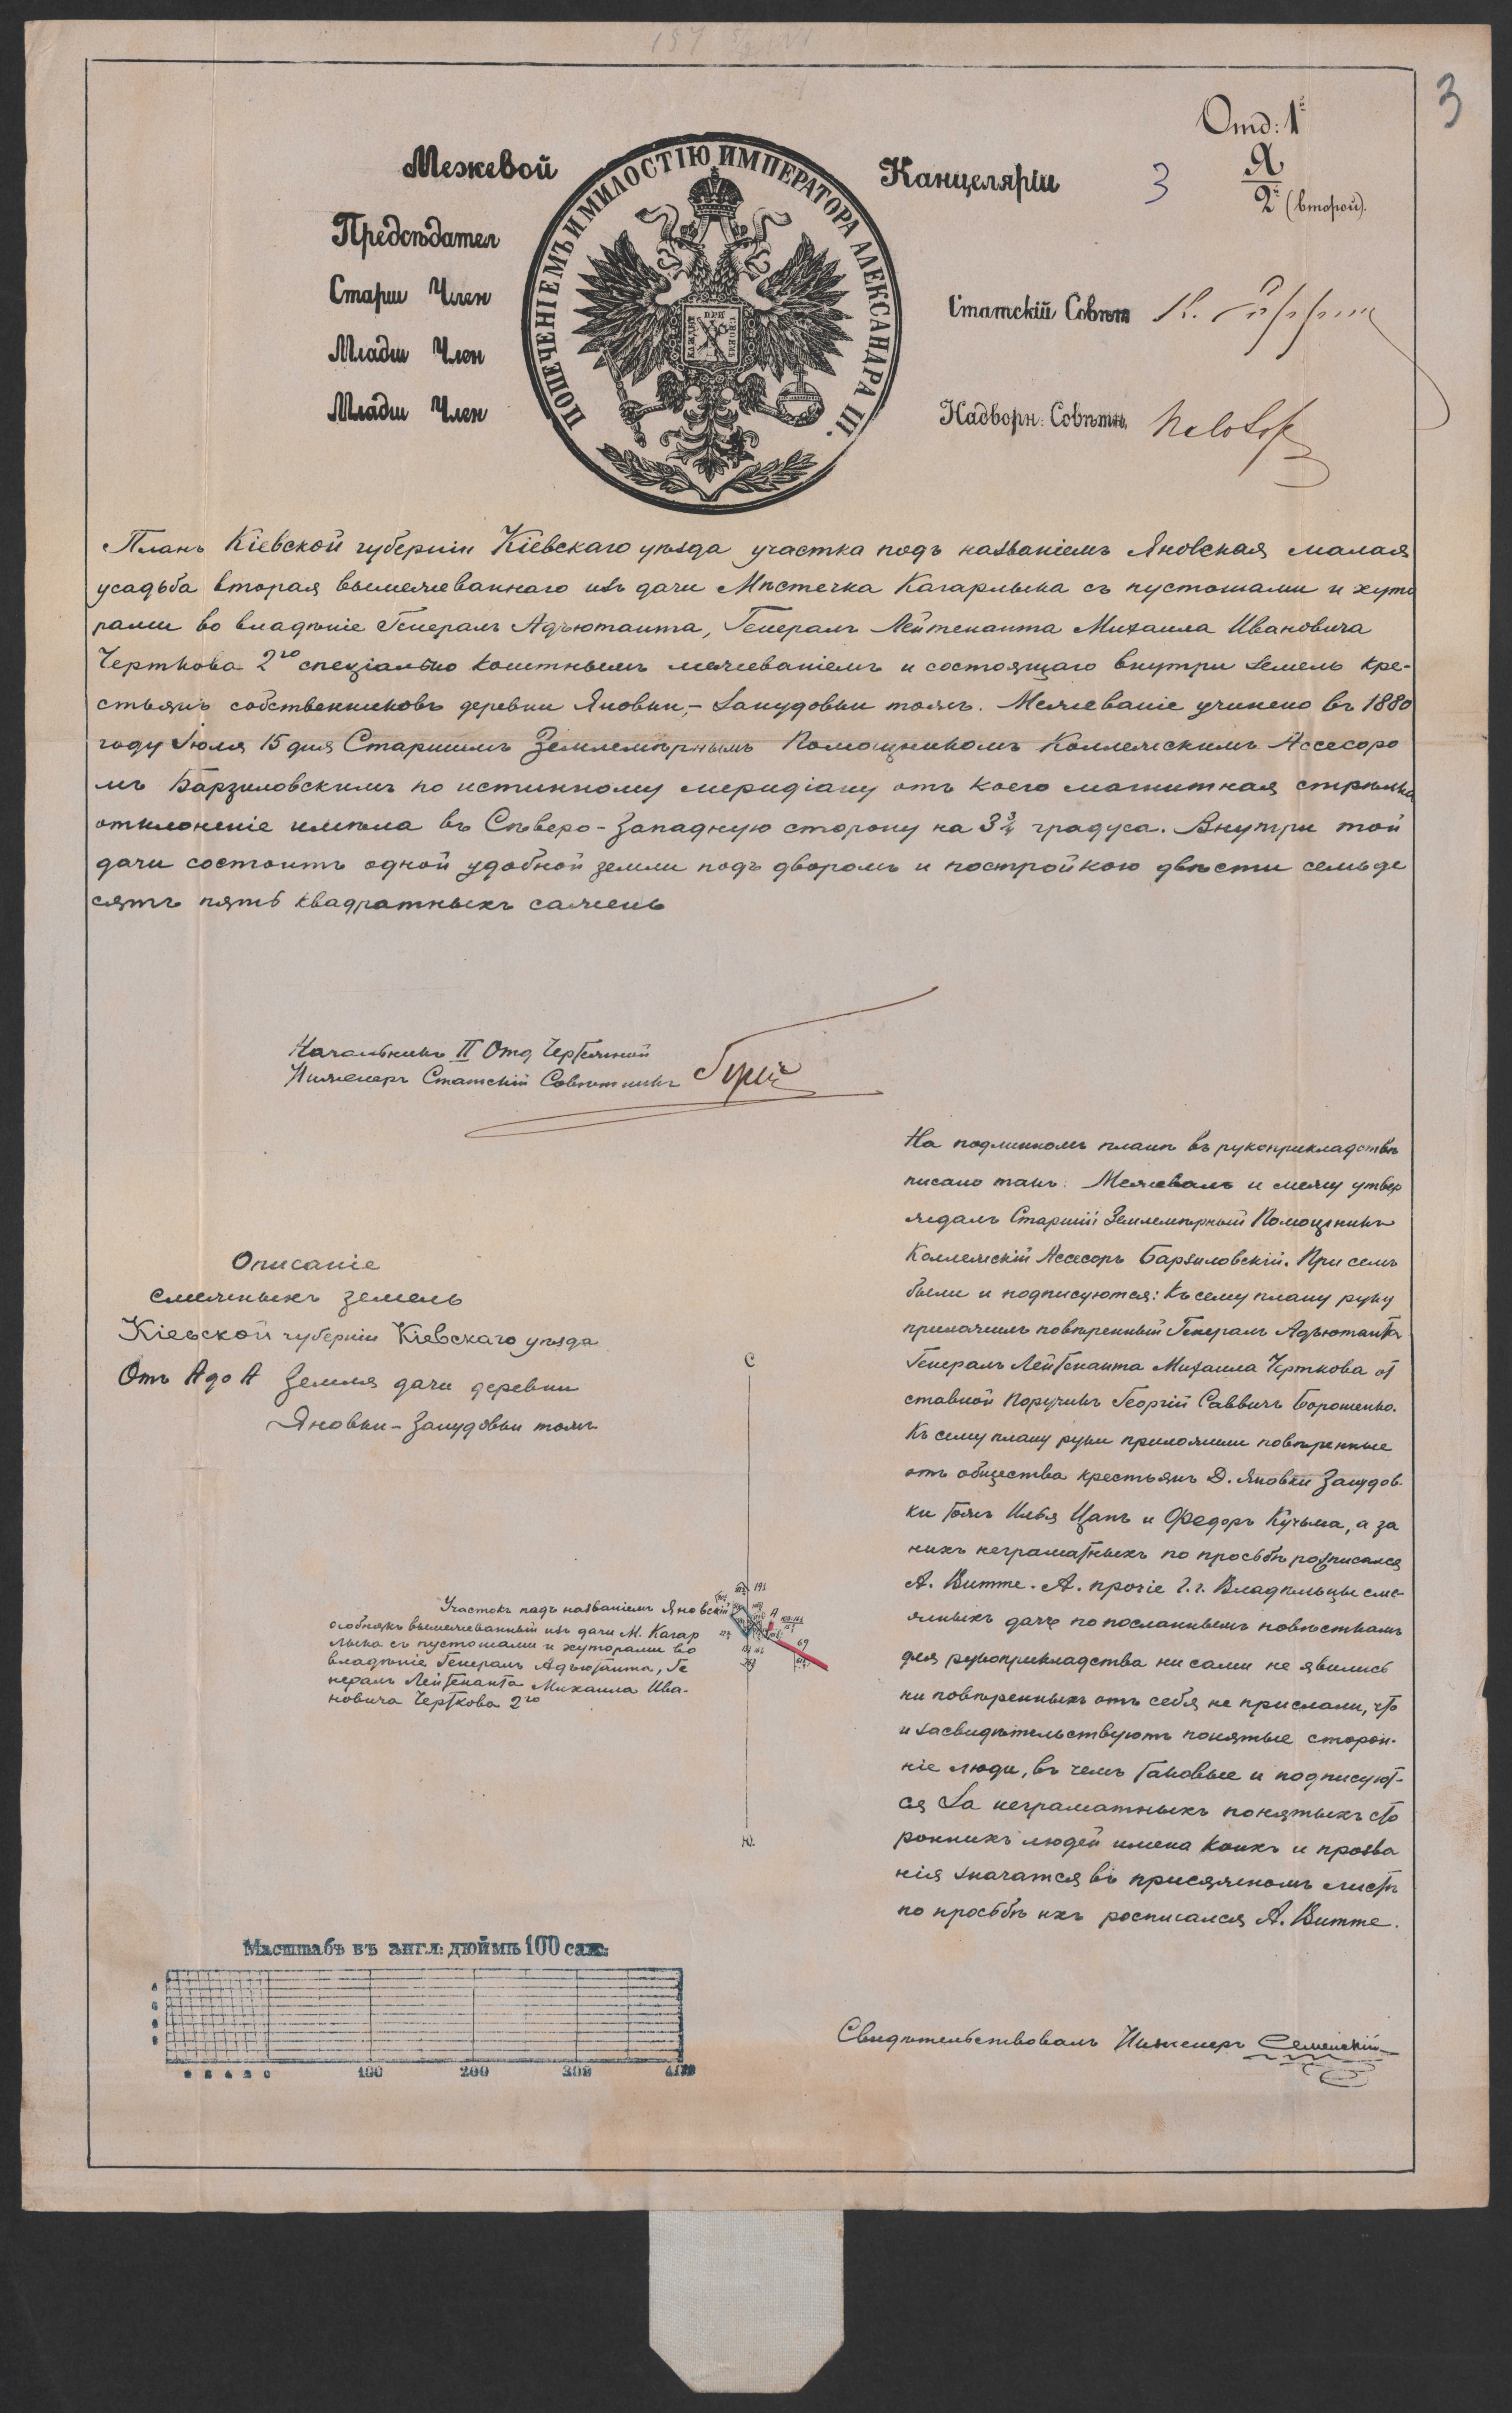 3
Отд: 1е
Я
2е (второй).
3
Межевой Канцеляріи
Предсѣдател
Старш Член
Младш Член
Младш Член
ПОПЕЧЕНІЕМЪ И МИЛОСТІЮ ИМПЕРАТОРА АЛЕКСАНДРА III.
Статскій Совѣтн
Надворн: Совѣтн.
Планъ Кіевской губерніи Кіевскаго уѣзда участка подъ названіемъ Яновская малая
усадьба вторая вымежеваннаго изъ дачи Мѣстечка Кагарлыка съ пустошами и хуто
рами во владѣніе Генералъ Адъютанта, Генералъ Лейтенанта Михаила Ивановича
Черткова 2го спеціально коштнымъ межеваніемъ и состоящаго внутри земель кре-
стьянъ собственниковъ деревни Яновки,- Запудовки тожъ. Межеваніе учинено въ 1880
году Іюля 15 дня Старшимъ Землемѣрнымъ Помощникомъ Коллежскимъ Ассесоро
мъ Барзиловскимъ по истинному меридіану отъ коего магнитная стрѣлка
отклоненіе имѣла въ Сѣверо-Западную сторону на 3¾ градуса. Внутри той
дачи состоитъ одной удобной земли подъ дворомъ и постройкою двѣсти семьде
сятъ пять квадратныхъ сажень
Начальникъ II Отд Чертежной
Инженеръ Статскій Совѣтникъ
Описаніе
смежныхъ земель
Кіевской губерніи Кіевскаго уѣзда
Отъ А до А Земля дачи деревни
Яновки-Запудовки тожъ
С
Участокъ падъ названіемъ Яновскій
особнякъ вымежеванный изъ дачи М. Кагар
лыка съ пустошами и хуторами во
владѣніе Генералъ Адъютанта, Ге
нералъ Лейтенанта Михаила Ива-
новича Черткова 2го
А
69
Ю.
На подлинномъ планѣ въ рукоприкладствѣ
писано такъ: Межевалъ и межу утвер
ждалъ Старшій Землемѣрный Помощникъ
Коллежскій Асесоръ Барзиловскій. При семъ
были и подписуются: Къ сему плану руку
приложилъ повѣренный Генералъ Адъютанта
Генералъ Лейтенанта Михаила Черткова от
ставной Поручикъ Георгій Саввичъ Борошенко.
Къ сему плану руки приложили повѣренные
отъ общества крестьянъ Д. Яновки Запудов-
ки тожъ Илья Цапъ и Федоръ Кучьма, а за
нихъ неграматныхъ по просьбѣ росписался
А. Витте. А. прочіе г.г. Владѣльцы сме-
жныхъ дачъ по посланнымъ повѣсткамъ
для рукоприкладства ни сами не явились
ни повѣренныхъ отъ себя не прислали, что
и засвидѣтельствуютъ понятые сторон-
ніе люди, въ чемъ таковые и подписуют-
ся За неграматныхъ понятыхъ сто
роннихъ людей имена коихъ и прозва
нія значатся въ присяжномъ листѣ
по просьбѣ ихъ росписался А. Витте.
Масштабъ въ англ: дюймѣ 100 саж:
100 200 300 400
Свидѣтельствовалъ Инженеръ Семенскій